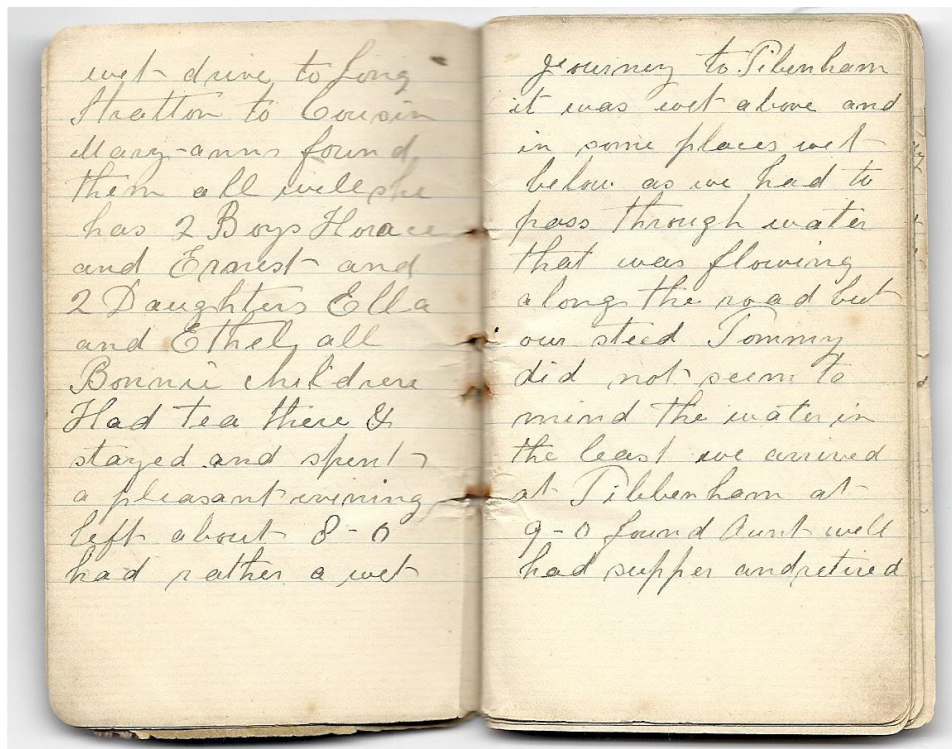 wet drive to Long
Stratton to Cousin
Mary-anns found
them all well she
has 2 Boys Horace
and Ernest and
2 Daughters Ella
and Ethel, all
Bonnie children
Had tea there &
stayed and spent
a pleasant evening
left about 8-0
had rather a wet
journey to Tibenham
it was wet above and
in some places wet
below as we had to
pass through water
that was flowing
along the road but
our steed Tommy
did not seem to
mind the water in
the least we arrived
at Tibbenham at
9-0 found Aunt well
had supper and retired